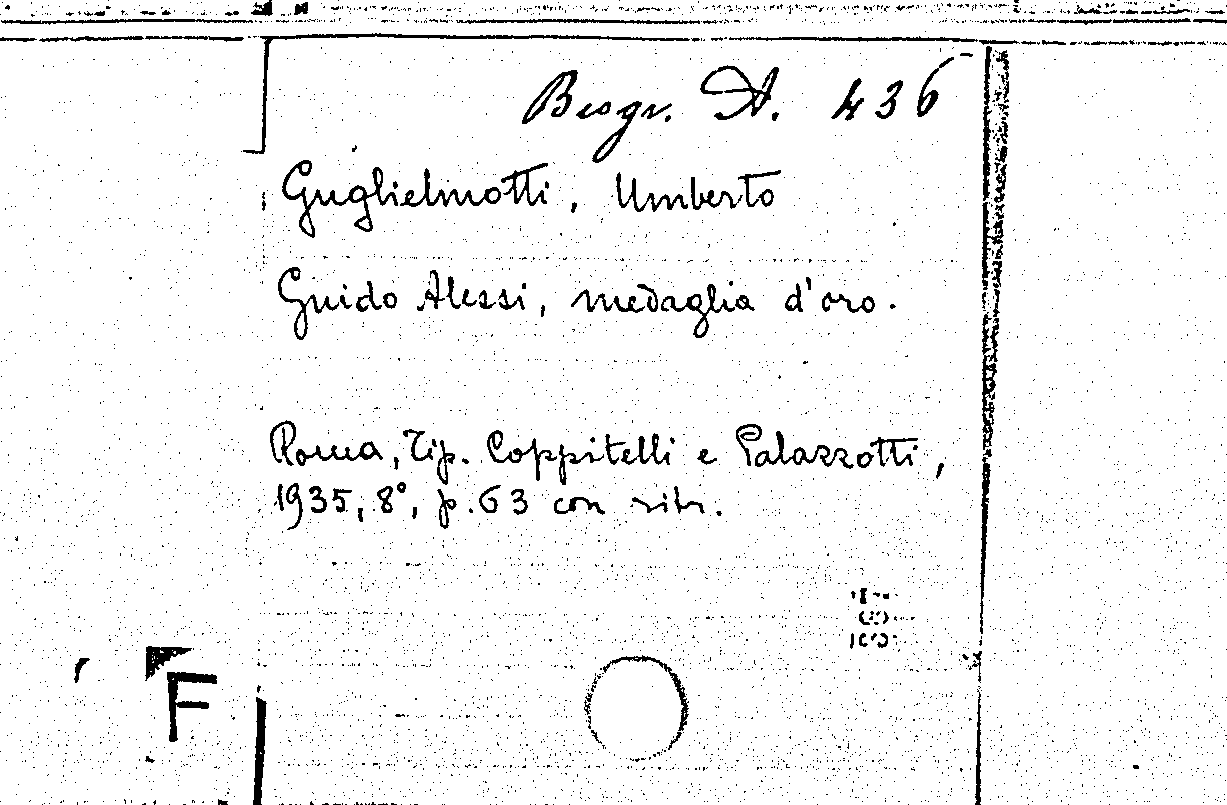 Biogr. A. 436
Guglielmotti, Umberto
Guido Alessi, medaglia d'oro.
Roma, Tip. Coppitelli e Palazzotti,
1935, 8°, p. 63 con ritr.
F